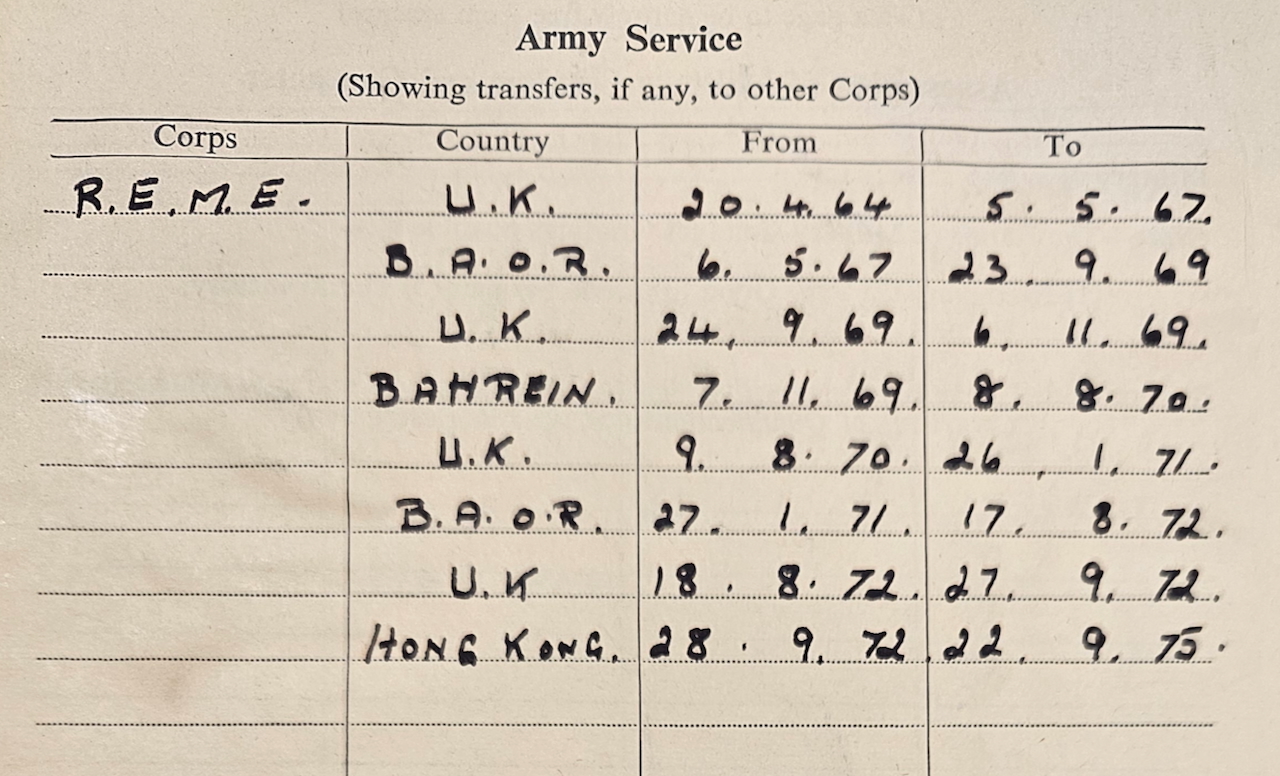 Army Service
(Showing transfers, if any, to other Corps)
Corps Country From To
R.E.M.E. U.K. 20.4.64 5.5.67.
B.A.O.R. 6.5.67 23.9.69
U.K. 24.9.69. 6.11.69.
BAHREIN. 7.11.69. 8.8.70.
U.K. 9.8.70. 26.1.71.
B.A.O.R. 27.1.71. 17.8.72.
U.K 18.8.72. 27.9.72.
HONG KONG. 28.9.72 22.9.75.